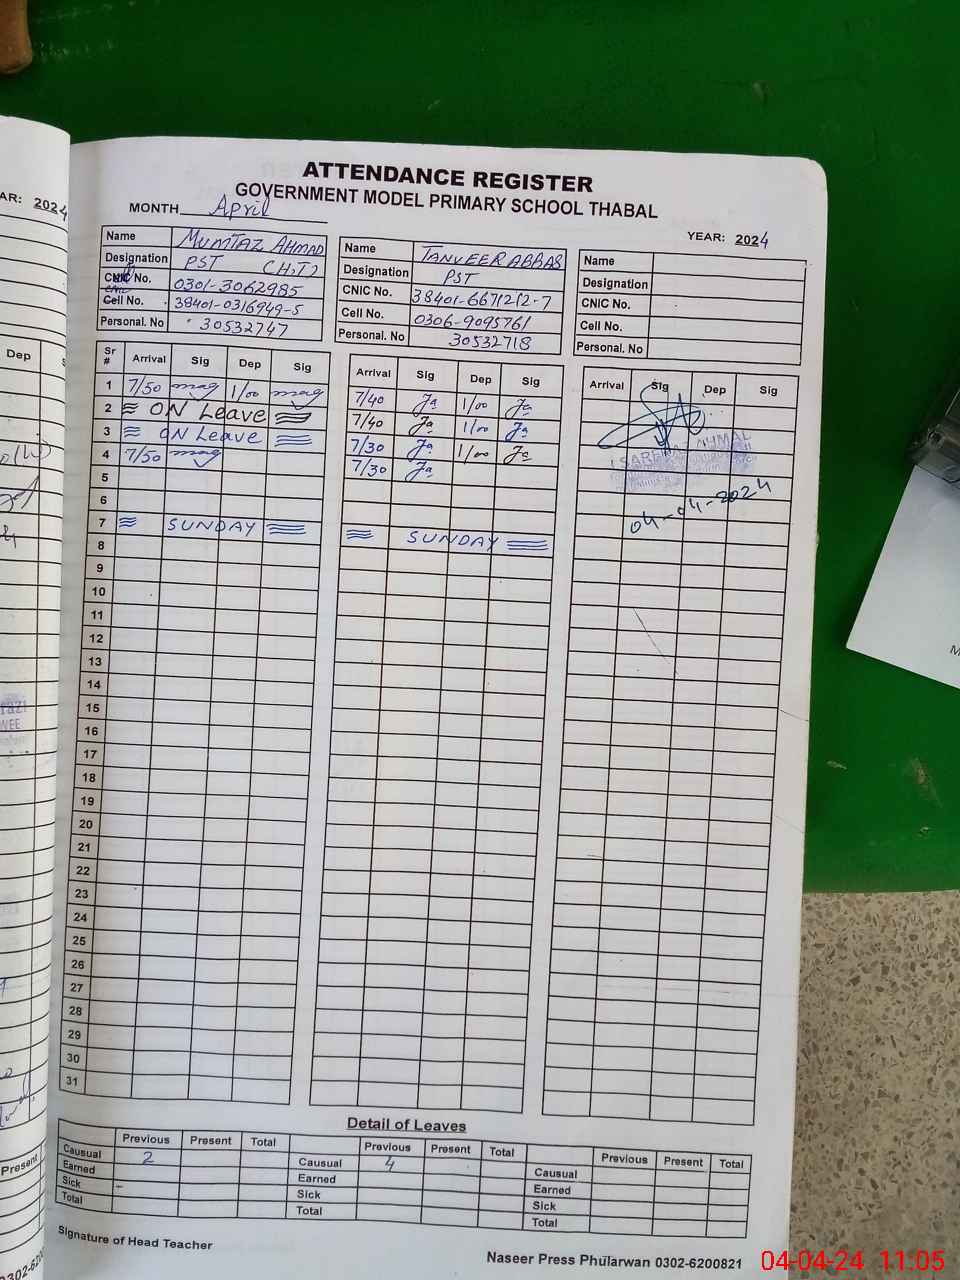 ATTENDANCE REGISTER
GOVERNMENT MODEL PRIMARY SCHOOL THABAL
MONTH April
YEAR: 2024
AR: 2024
Name MUMTAZ AHMAD
Designation PST (H.T)
CNIC No. 0301-3062985
CNIC
Cell No. 38401-0316949-5
Personal. No 30532747
Name TANVEER ABBAS
Designation PST
CNIC No. 38401-6671212-7
Cell No. 0306-9095761
Personal. No 30532718
Name
Designation
CNIC No.
Cell No.
Personal. No
Dep
Sr # Arrival Sig Dep Sig
1 7/50 mag 1/00 mag
2 ON Leave
3 ON Leave
4 7/50 mag
5
6
7 SUNDAY
8
9
10
11
12
13
14
15
16
17
18
19
20
21
22
23
24
25
26
27
28
29
30
31
Arrival Sig Dep Sig
7/40 1/00
7/40 1/00
7/30 1/00
7/30
SUNDAY
Arrival Sig Dep Sig
04-04-2024
Detail of Leaves
Previous Present Total
Causual 2
Earned
Sick -
Total
Previous Present Total
Causual 4
Earned
Sick
Total
Previous Present Total
Causual
Earned
Sick
Total
Present
Signature of Head Teacher
Naseer Press Phularwan 0302-6200821
04-04-24 11:05